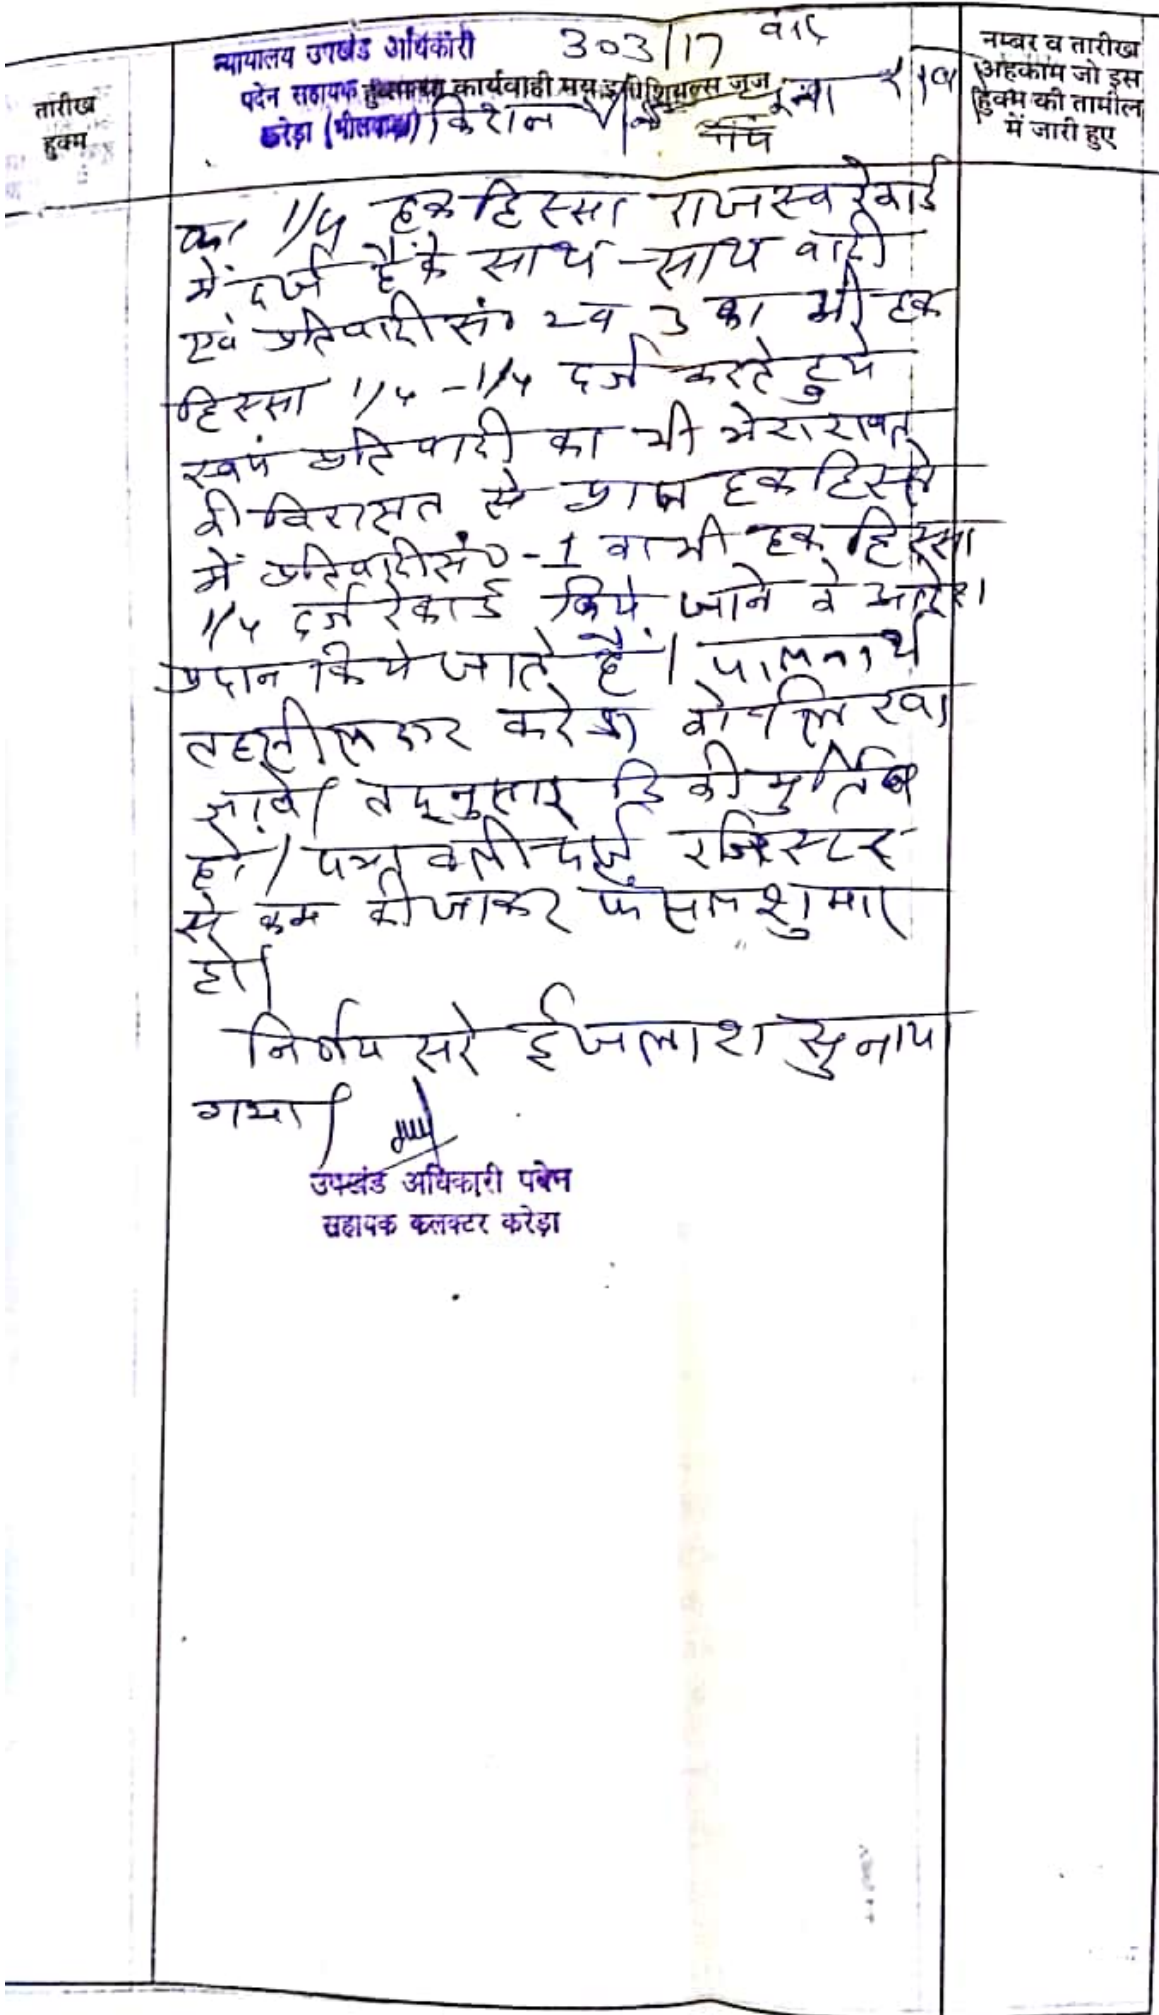 न्यायालय उपखंड अधिकारी 303/17 वाद
पदेन सहायक कार्यवाही मय इनीशियल्स जज
करेड़ा (भीलवाड़ा) किशन
तारीख
हुक्म
नम्बर व तारीख
अहकाम जो इस
हुक्म की तामील
में जारी हुए
का 1/4 हक हिस्सा राजस्व रेकार्ड
में दर्ज है के साथ-साथ वादी
एवं प्रतिवादी सं० 2 व 3 का भी हक
हिस्सा 1/4 -1/4 दर्ज करते हुये
स्वयं प्रतिवादी का भी
की विरासत से प्राप्त हक हिस्से
में प्रतिवादी सं०-1 का भी हक हिस्सा
1/4 दर्ज रेकार्ड किये जाने के आदेश
प्रदान किये जाते हैं। पालनार्थ
तहसीलदार करेड़ा को लिखा
जावे। तद्नुसार डिक्री मुर्तिब
हो। पत्रावली दर्ज रजिस्टर
से कम की जाकर फैसल शुमार
हो।
निर्णय सरे ईजलाश सुनाया
गया।
उपखंड अधिकारी पदेन
सहायक कलक्टर करेड़ा